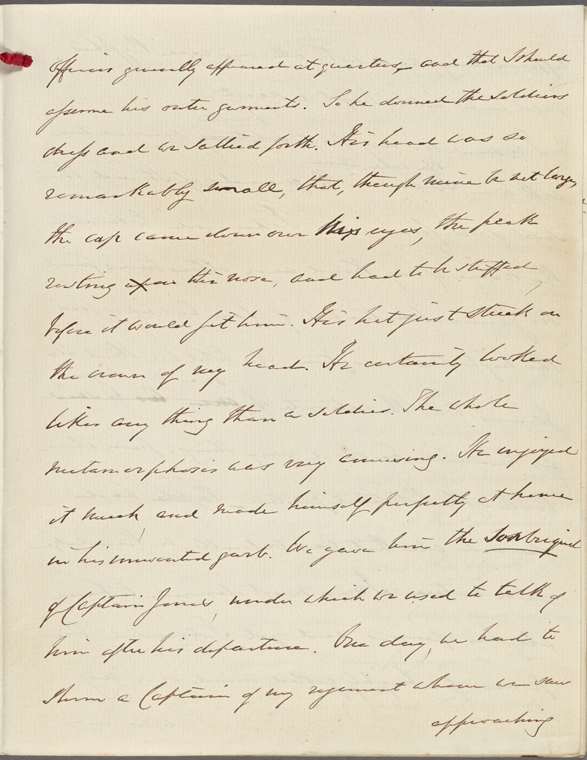 officers generally appeared at quarters, and that I should
assume his outer garments. So he donned the soldiers
dress and we sallied forth. His head was so
remarkably small, that, though mine be not large,
the cap came down over his eyes, the peak
resting on his nose, and had to be stuffed
before it would fit him. His hat just stuck on
the crown of my head. He certainly looked
liker any thing than a soldier. The whole
metamorphosis was very amusing. He enjoyed
it much, and made himself perfectly at home
in his unwonted garb. We gave him the Sobriquet
of Captain Jones, under which we used to talk of
him after his departure. One day, we had to
a Captain of my regiment whom we saw
approaching